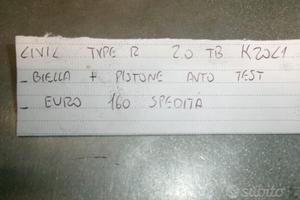 CIVIL TYPE R 2.0 TB K20C1
- BIELLA + PISTONE AUTO TEST
- EURO 160 SPEDITA
subito